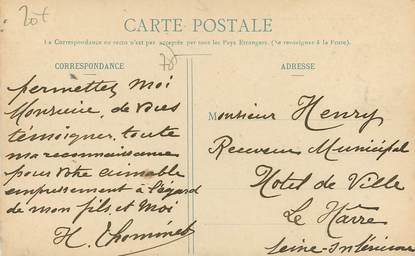 20+
CARTE POSTALE
La Correspondance au recto n'est pas acceptée par tous les Pays Etrangers. (Se renseigner à la Poste).
CORRESPONDANCE
ADRESSE
permettez Moi
Monsieur, de Vous
témoigner, toute
ma reconnaissance
pour Votre aimable
empressement à l'égard
de mon fils, et Moi
H. Thominet
Monsieur Henry
Receveur Municipal
Hotel de Ville
Le Havre
Seine-Inférieure